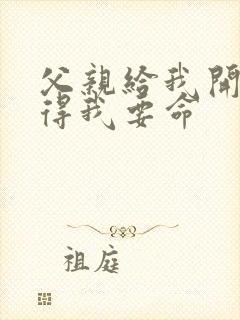 父親給我開
得我要命
祖庭